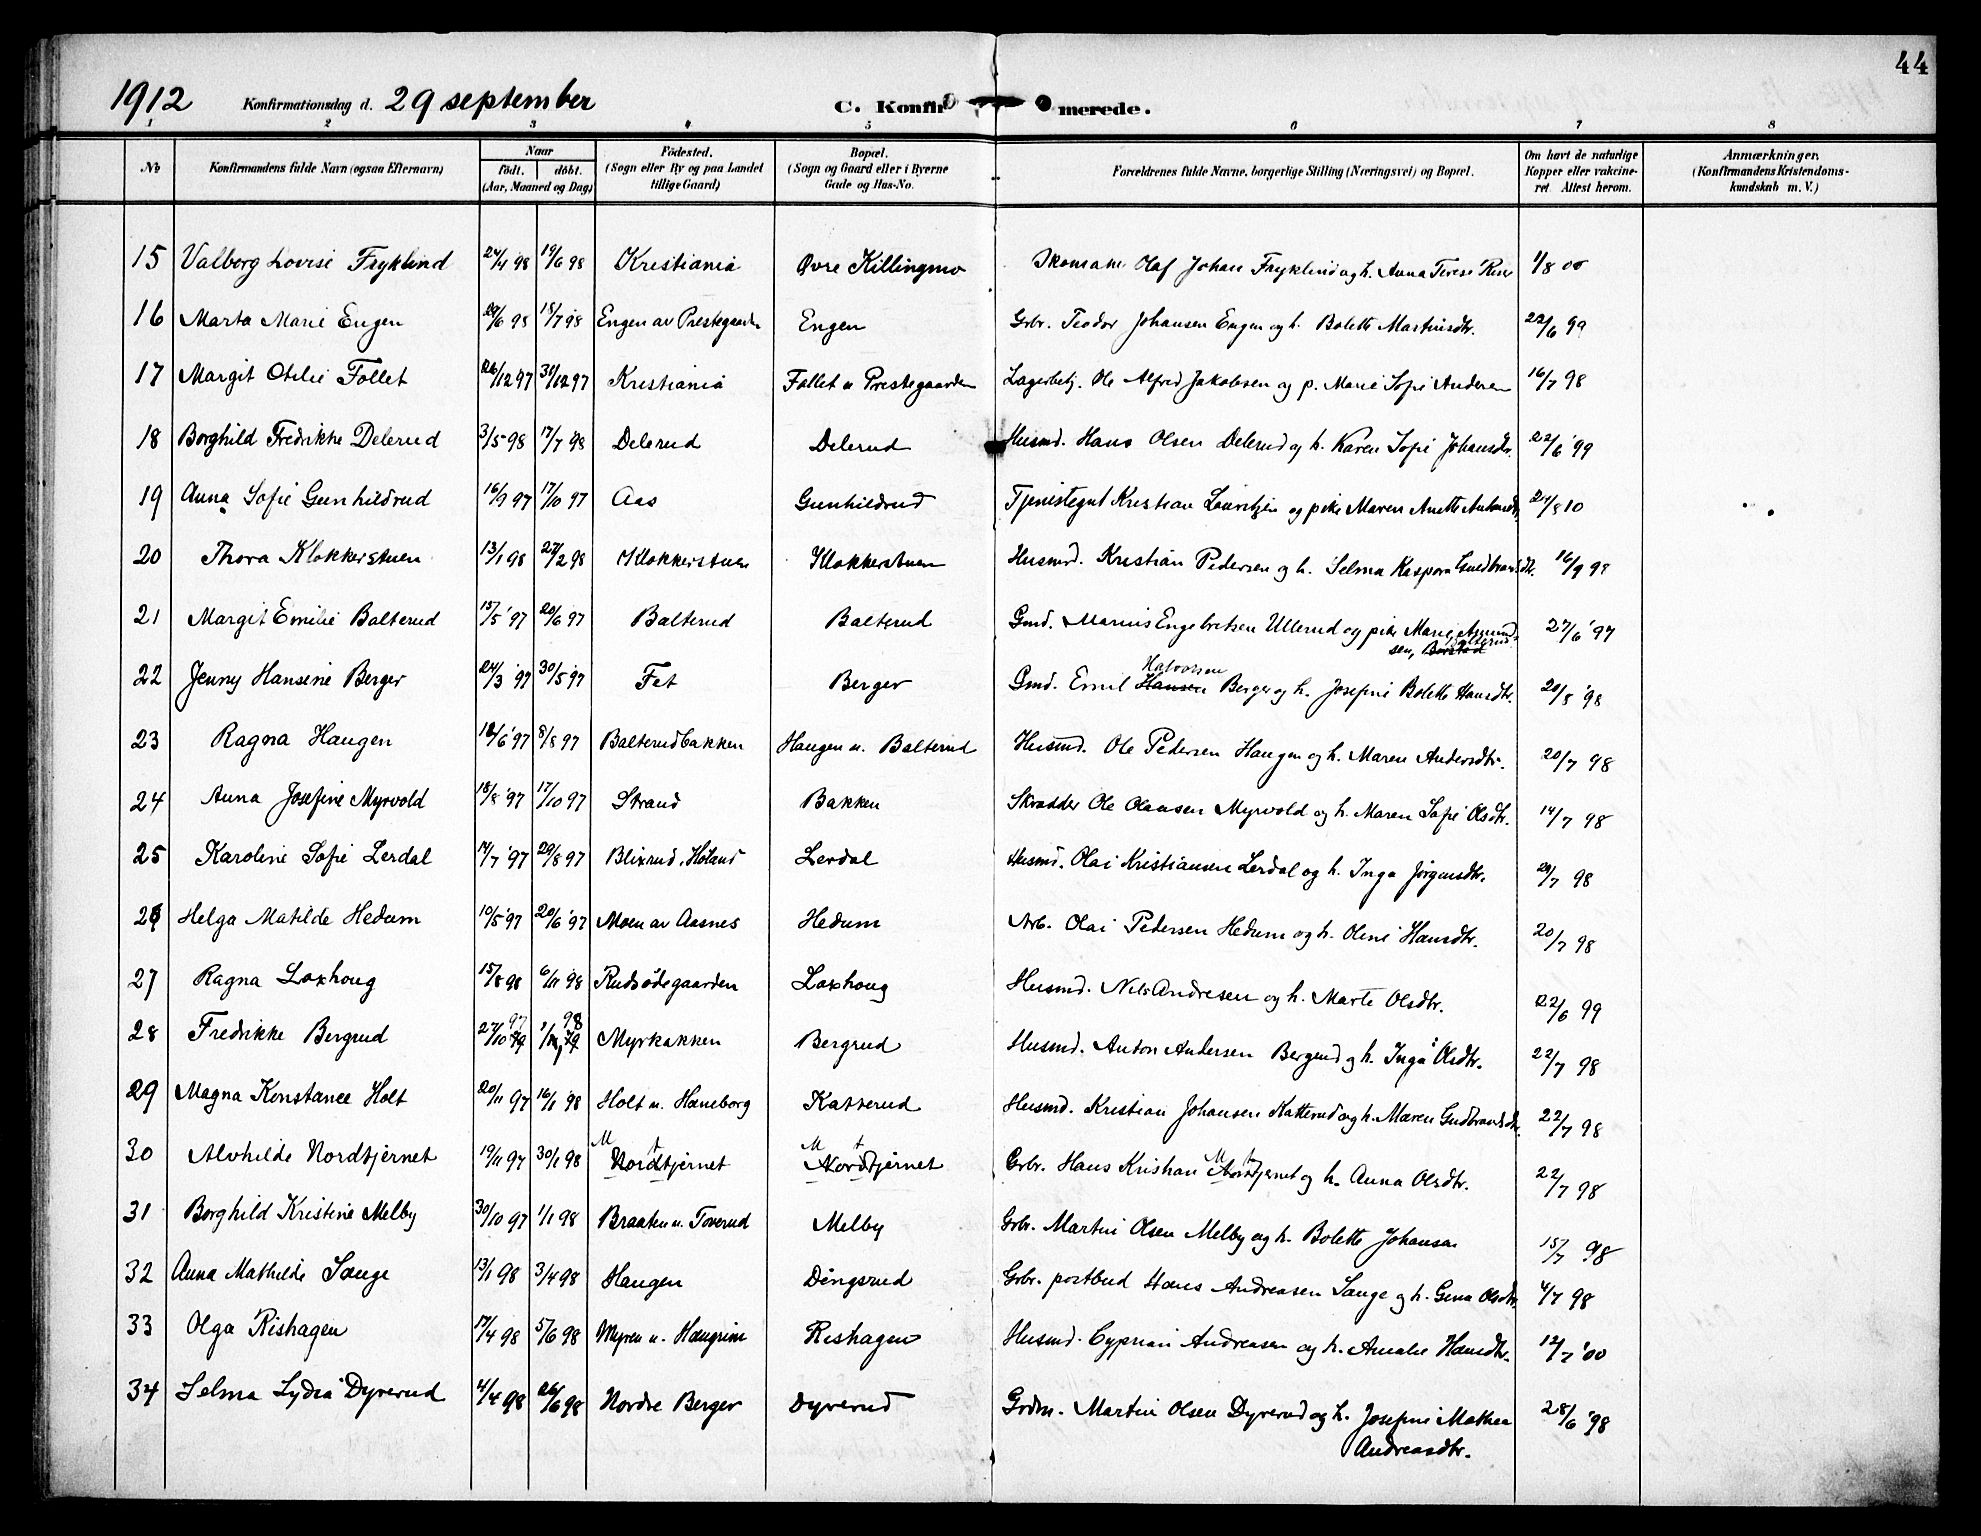 44
1912 Konfirmationsdag d. 29 september C. Konfir merede.
1 2 3 4 5 6 7 8
No Konfirmandens fulde Navn (ogsaa Efternavn) Naar født. døbt. (Aar, Maaned og Dag) Fødested. (Sogn eller By og paa Landet tillige Gaard) Bopæl. (Sogn og Gaard eller i Byerne Gade og Hus-No. Forældrenes fulde Navne, borgerlige Stilling (Næringsvei) og Bopæl. Om havt de naturlige Kopper eller vakcineret. Attest herom. Anmærkninger. (Konfirmandens Kristendomskundskab m. V.)
15 Valborg Lovise Fryklind 24/4 98 19/6 98 Kristiania Øvre Killingmo Skomaker Olaf Johan Fryklind og h. Anna Terese 1/8 00
16 Marta Marie Engen 29/6 98 18/7 98 Engen av Prestegaarden Engen Gbr. Teodor Johansen Engen og h. Bolette Martinsdtr. 22/6 99
17 Margit Otelie Follet 26/12 97 31/12 97 Kristiania Follet u Prestegaarden Lagerbetj. Ole Alfred Jakobsen og p. Marie Sofie Andersen 16/7 98
18 Borghild Fredrikke Delerud 3/5 98 17/7 98 Delerud Delerud Husmd. Hans Olsen Delerud og h. Karen Sofie Johansdtr. 22/6 '99
19 Anna Sofie Gunhildrud 16/9 97 17/10 97 Aas Gunhildrud Tjenestegut Kristian Lauritzen og pike Maren Anette Antonsdtr. 24/8 10
20 Thora Klokkerstuen 13/1 98 27/2 98 Klokkerstuen Klokkerstuen Husmd. Kristian Pedersen og h. Selma Kaspara Gudbrandsdtr. 16/9 98
21 Margit Emilie Balterud 15/5 '97 20/6 97 Balterud Balterud Gmd. Marius Engebretsen Ullerud og pike Marie Amund-
sen, Balterud
27/6 '97
22 Jenny Hansine Berger 24/3 '97 30/5 97 Fet Berger Gmd. Emil Hansen Halvorsen Berger og h. Josefine Bolette Hansdtr. 20/8 '98
23 Ragna Haugen 12/6 '97 8/8 97 Balterudbakken Haugen u. Balterud Husmd. Ole Pedersen Haugen og h. Maren Andersdtr. 20/7 98
24 Anna Josefine Myrvold 18/8 '97 17/10 97 Strand Bakken Skrædder Ole Olausen Myrvold og h. Maren Sofie Olsdtr. 14/7 98
25 Karoline Sofie Lerdal 14/7 '97 29/8 97 Blixrud, Høland Lerdal Husmd. Olai Kristiansen Lerdal og h. Inga Jørgensdtr. 29/7 98
26 Helga Matilde Hedum 10/5 '97 20/6 '97 Moen av Aasnes Hedum Arb. Olai Pedersen Hedum og h. Oline Hansdtr. 20/7 98
27 Ragna Laxhoug 15/8 98 6/11 98 Rudsødegaarden Laxhoug Husmd. Nils Andresen og h. Marte Olsdtr. 22/6 99
28 Fredrikke Bergrud 27/10 97 1/1 98 Myrbakken Bergrud Husmd. Anton Andersen Bergrud og h. Inga Olsdtr. 22/7 98
29 Magna Konstance Holt 20/11 97 16/1 98 Holt u. Haneborg Katterud Husmd. Kristian Johansen Katterud og h. Maren Gudbrandsdtr. 22/7 98
30 Alvhilde Nordtjernet 19/11 97 30/1 98 Nordtjernet Nordtjernet Gbr. Hans Kristian Nordtjernet og h. Anna Olsdtr. 22/7 98
31 Borghild Kristine Melby 30/10 97 1/1 98 Braaten u. Toverud Melby Gbr. Martin Olsen Melby og h. Bolette Johansen 15/7 98
32 Anna Mathilde Sauge 13/1 98 3/4 98 Haugen Dingsrud Gbr. postbud Hans Andreasen Sauge og h. Gina Olsdtr. 4/7 98
33 Olga Rishagen 17/4 98 5/6 98 Myren u. Haugrim Rishagen Husmd. Cyprian Andreasen og h. Amalie Hansdtr. 12/7 '00
34 Selma Lydia Dyrerud 4/4 98 26/6 98 Nordre Berger Dyrerud Grdm. Martin Olsen Dyrerud og h. Josefine Mathea
Andreasdtr.
28/6 '98